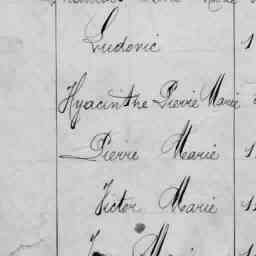 Ludovic 1
Hyacinthe Pierre Marie
Pierre Marie 1
Victor Marie 1
Marie